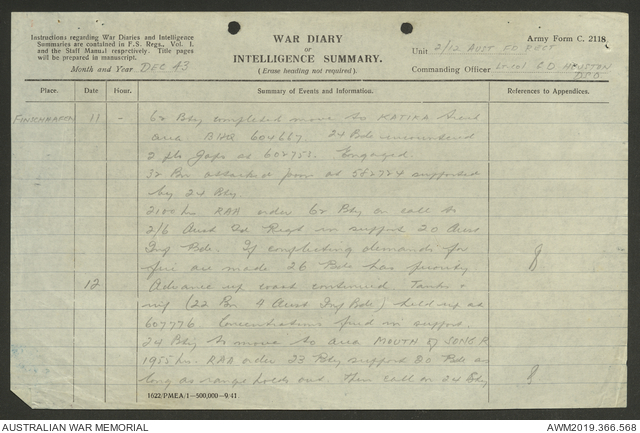 Instructions regarding War Diaries and Intelligence
Summaries are contained in F.S. Regs., Vol. I.
and the Staff Manual respectively. Title pages
will be prepared in manuscript.
Month and Year DEC 43
WAR DIARY
or
INTELLIGENCE SUMMARY.
(Erase heading not required).
Army Form C. 2118.
Unit 2/12 AUST FD REGT
Commanding Officer Lt Col C D HOUSTON
DSO
Place. Date Hour. Summary of Events and Information. References to Appendices.
FINSCHHAFEN 11 - 62 Bty completed move to KATIKA
area. BHQ 604667 24 Bde encountered
2 at 602755. Engaged.
32 Bn attacked from at 582724 supported
by 24 Bty.
2100 hrs RAA order 62 Bty on call to
2/6 Aust Fd Regt in support 20 Aust
Inf Bde. If conflicting demands for
fire are made 26 Bde has priority.
12 Advance up coast continued. Tanks &
inf (22 Bn 4 Aust Inf Bde) held up at
607776 Concentrations fired in support.
24 Bty to move to area MOUTH of SONG R
1955 hrs. RAA order 23 Bty support 20 Bde as
long as range holds out. Then call on 24 Bty
1622/PMEA/1—500,000—9/41.
AUSTRALIAN WAR MEMORIAL
AWM2019.366.568